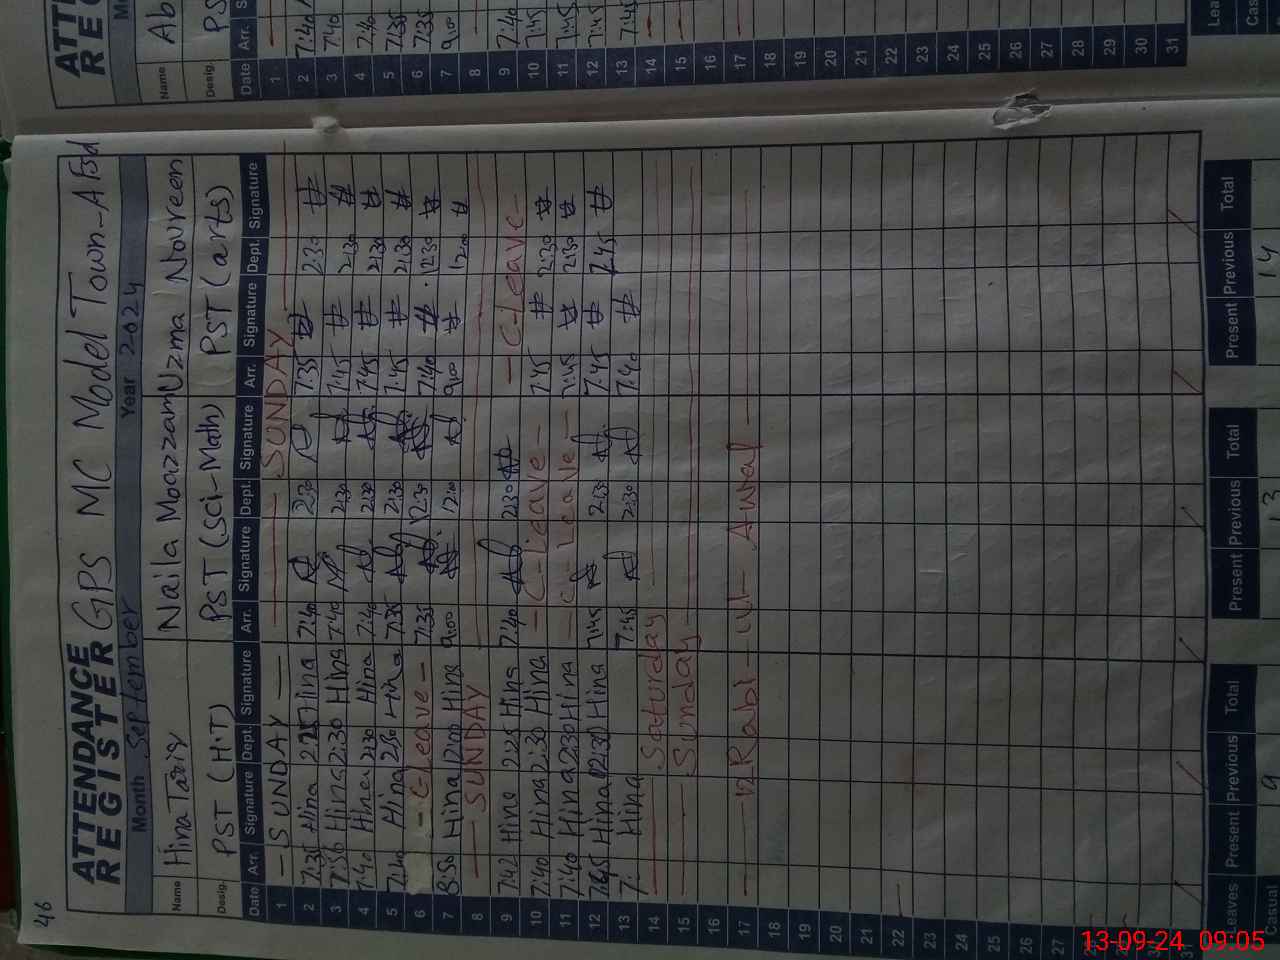 46
ATTENDANCE REGISTER GPS MC Model Town-A Fsd
Month September Year 2024
Name Hina Tariq Naila Moazzam Uzma Noureen
Desig. PST (H.T) PST (Sci-Math) PST (arts)
Date Arr. Signature Dept. Signature Arr. Signature Dept. Signature Arr. Signature Dept. Signature
1 — SUNDAY — — SUNDAY
2 7:35 Hina 2:25 Hina 7:40 2:30 7:35 2:30
3 7:36 Hina 2:30 Hina 7:40 2:30 7:45 2:30
4 7:40 Hina 2:30 Hina 7:40 2:30 7:45 2:30
5 7:40 Hina 2:30 Hina 7:35 2:30 7:45 2:30
6 - C-Leave - 7:35 12:30 7:40 12:30
7 8:50 Hina 12:00 Hina 9:00 12:00 9:00 12:00
8 — SUNDAY
9 7:42 Hina 2:25 Hina 7:40 2:30 — C-Leave -
10 7:40 Hina 2:30 Hina - C-Leave - 7:45 2:30
11 7:40 Hina 2:30 Hina - C-Leave - 7:45 2:30
12 7:45 Hina 2:30 Hina 7:45 2:30 7:45 2:45
13 7: Hina 7:45 2:30 7:40
14 Saturday
15 Sunday
16
17 12 Rabi-ul-Awal
18
19
20
21
22
23
24
25
26
27
Leaves Present Previous Total Present Previous Total Present Previous Total
Casual 9 13 14
ATTE
REG
Name Ab
Desig. PS
Date Arr.
1
2 7:40
3 7:40
4 7:40
5 7:35
6 7:35
7 9:00
8
9 7:40
10 7:45
11 7:45
12 7:45
13 7:45
14
15
16
17
18
19
20
21
22
23
24
25
26
27
28
29
30
31
Lea
Cas
13-09-24 09:05